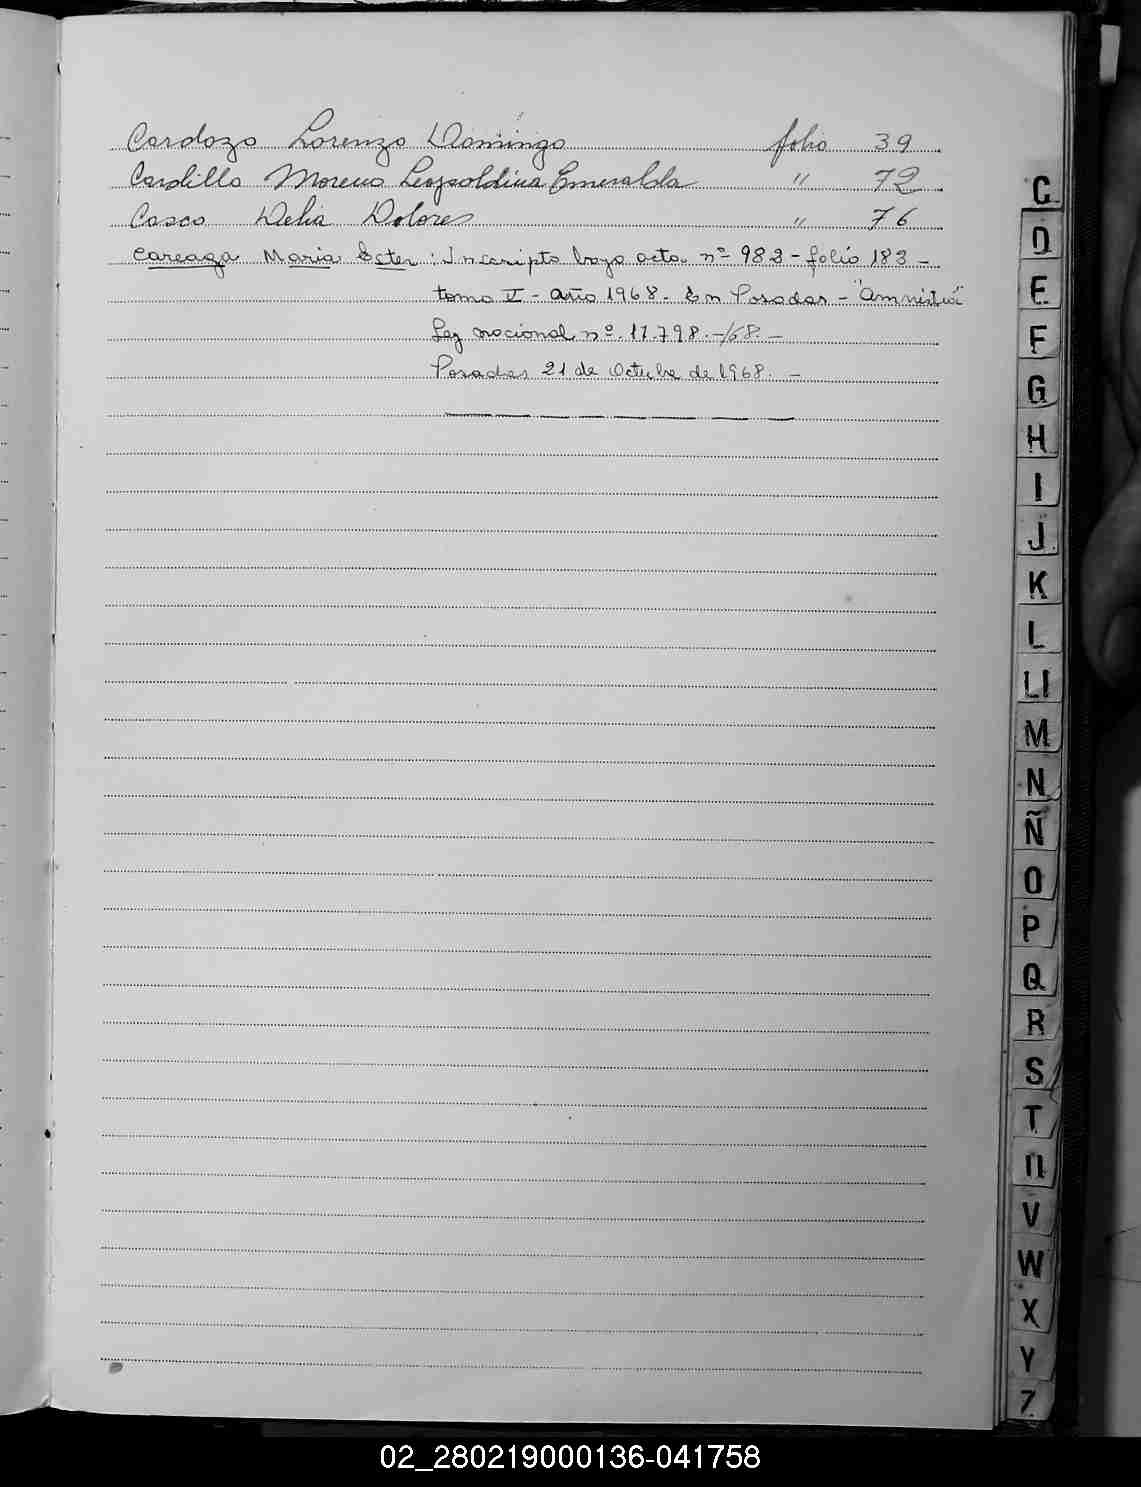 Cardozo Lorenzo Domingo folio 39
Cardillo Moreno Leopoldina Esmeralda " 72
Casco Delia Dolores " 76
Careaga Maria Ester : Inscripto bajo acta nº 983 - folio 183 -
tomo V - año 1968 - En Posadas - "Amnistia"
Ley nacional nº 17.798.-/68. -
Posadas 21 de Octubre de 1968. -
C
D
E
F
G
H
I
J
K
L
Ll
M
N
Ñ
O
P
Q
R
S
T
U
V
W
X
Y
Z
02_280219000136-041758